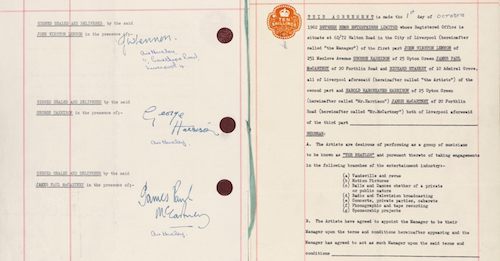 SIGNED SEALED AND DELIVERED by the said
JOHN WINSTON LENNON in the presence of:-
JWLennon.
SIGNED SEALED AND DELIVERED by the said
GEORGE HARRISON in the presence of:-
George
Harrison
SIGNED SEALED AND DELIVERED by the said
JAMES PAUL McCARTNEY in the presence of:-
James Paul
McCartney
TEN
SHILLINGS
THIS AGREEMENT is made the 1st day of OCTOBER
1962 BETWEEN NEMS ENTERPRISES LIMITED whose Registered Office is
situate at 60/72 Walton Road in the City of Liverpool (hereinafter
called "the Manager") of the first part JOHN WINSTON LENNON of
251 Menlove Avenue GEORGE HARRISON of 25 Upton Green JAMES PAUL
McCARTNEY of 20 Forthlin Road and RICHARD STARKEY of 10 Admiral Grove,
all of Liverpool aforesaid (hereinafter called "the Artists") of the
second part and HAROLD HARGREAVES HARRISON of 25 Upton Green
(hereinafter called "Mr.Harrison") JAMES McCARTNEY of 20 Forthlin
Road (hereinafter called "Mr.McCartney") both of Liverpool aforesaid
of the third part
WHEREAS:
A. The Artists are desirous of performing as a group of musicians
to be known as "THE BEATLES" and pursuant thereto of taking engagements
in the following branches of the entertainment industry:-
(a) Vaudeville and revue
(b) Motion Pictures
(c) Balls and Dances whether of a private
or public nature
(d) Radio and Television broadcasting
(e) Concerts, private parties, cabarets
(f) Phonographic and tape recording
(g) Sponsorship projects
B. The Artists have agreed to appoint the Manager to be their
Manager upon the terms and conditions hereinafter appearing and the
Manager has agreed to act as such Manager upon the said terms and
conditions